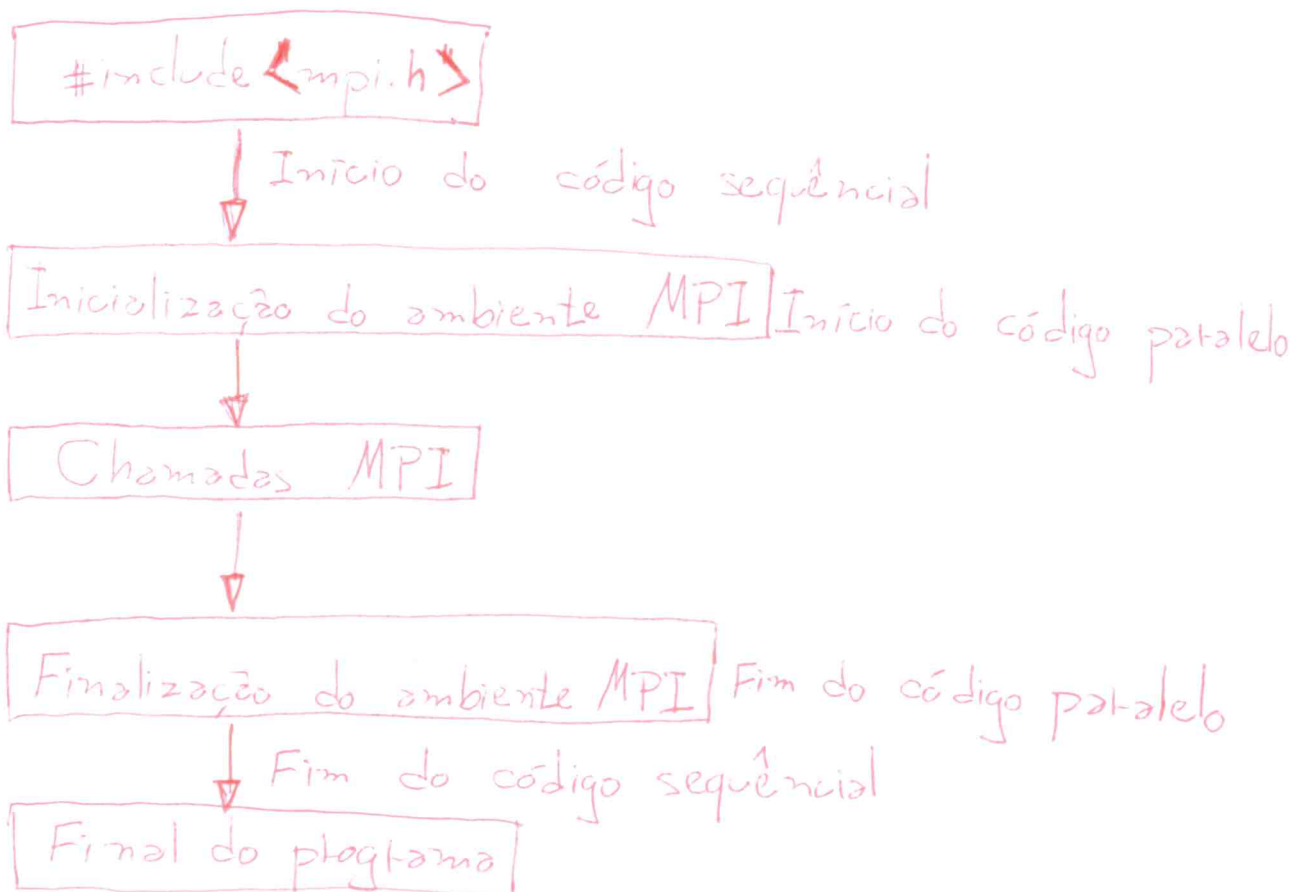 #include <mpi.h>
Início do código sequêncial
Inicialização do ambiente MPI Início do código paralelo
Chamadas MPI
Finalização do ambiente MPI Fim do código paralelo
Fim do código sequêncial
Final do programa